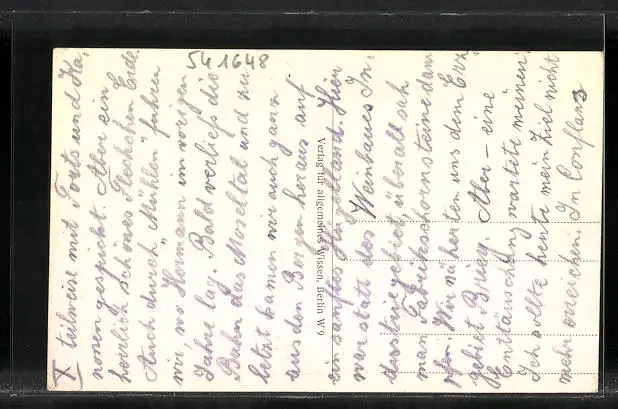 541648
X teilweise mit Forts und Ka-
nonen gespickt. Aber ein
herrlich schönes Fleckchen Erde.
Auch durch „Mühlen" fuhren
wir, wo Hermann im vorigen
Jahre lag. Bald verließ die
Bahn das Moseltal und zu
letzt kamen wir auch ganz
aus den Bergen heraus auf
ein sanftes Hügelland. Hier
war statt des Weinbaues In-
dustriegebiet, überall sah
man Fabrikschornsteine dam
pfen. Wir näherten uns dem Erz-
gebiet Briey. Aber – eine
Enttäuschung wartete meiner!
Ich sollte heute mein Ziel nicht
mehr erreichen. In Conflans
Verlag für allgemeines Wissen, Berlin W 9